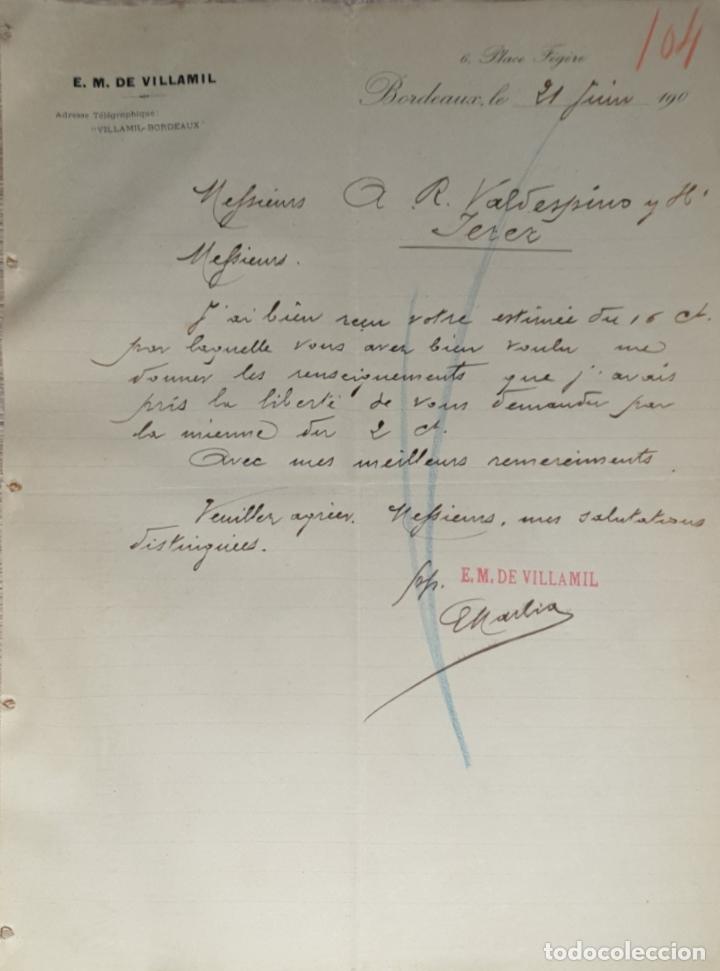 104
6, Place Fégère
E. M. DE VILLAMIL
Bordeaux, le 21 Juin 190
Adresse Télégraphique:
"VILLAMIL-BORDEAUX"
Messieurs A R. Valdespino y Hº
Jerez
Messieurs.
J'ai bien reçu votre estimée du 16 ct.
par laquelle vous avez bien voulu me
donner les renseignements que j'avais
pris la liberté de vous demander par
la mienne du 2 ct.
Avec mes meilleurs remerciments.
Veuillez agréer, Messieurs, mes salutations
distinguées.
pp. E. M. DE VILLAMIL
todocoleccion
todocoleccion.net